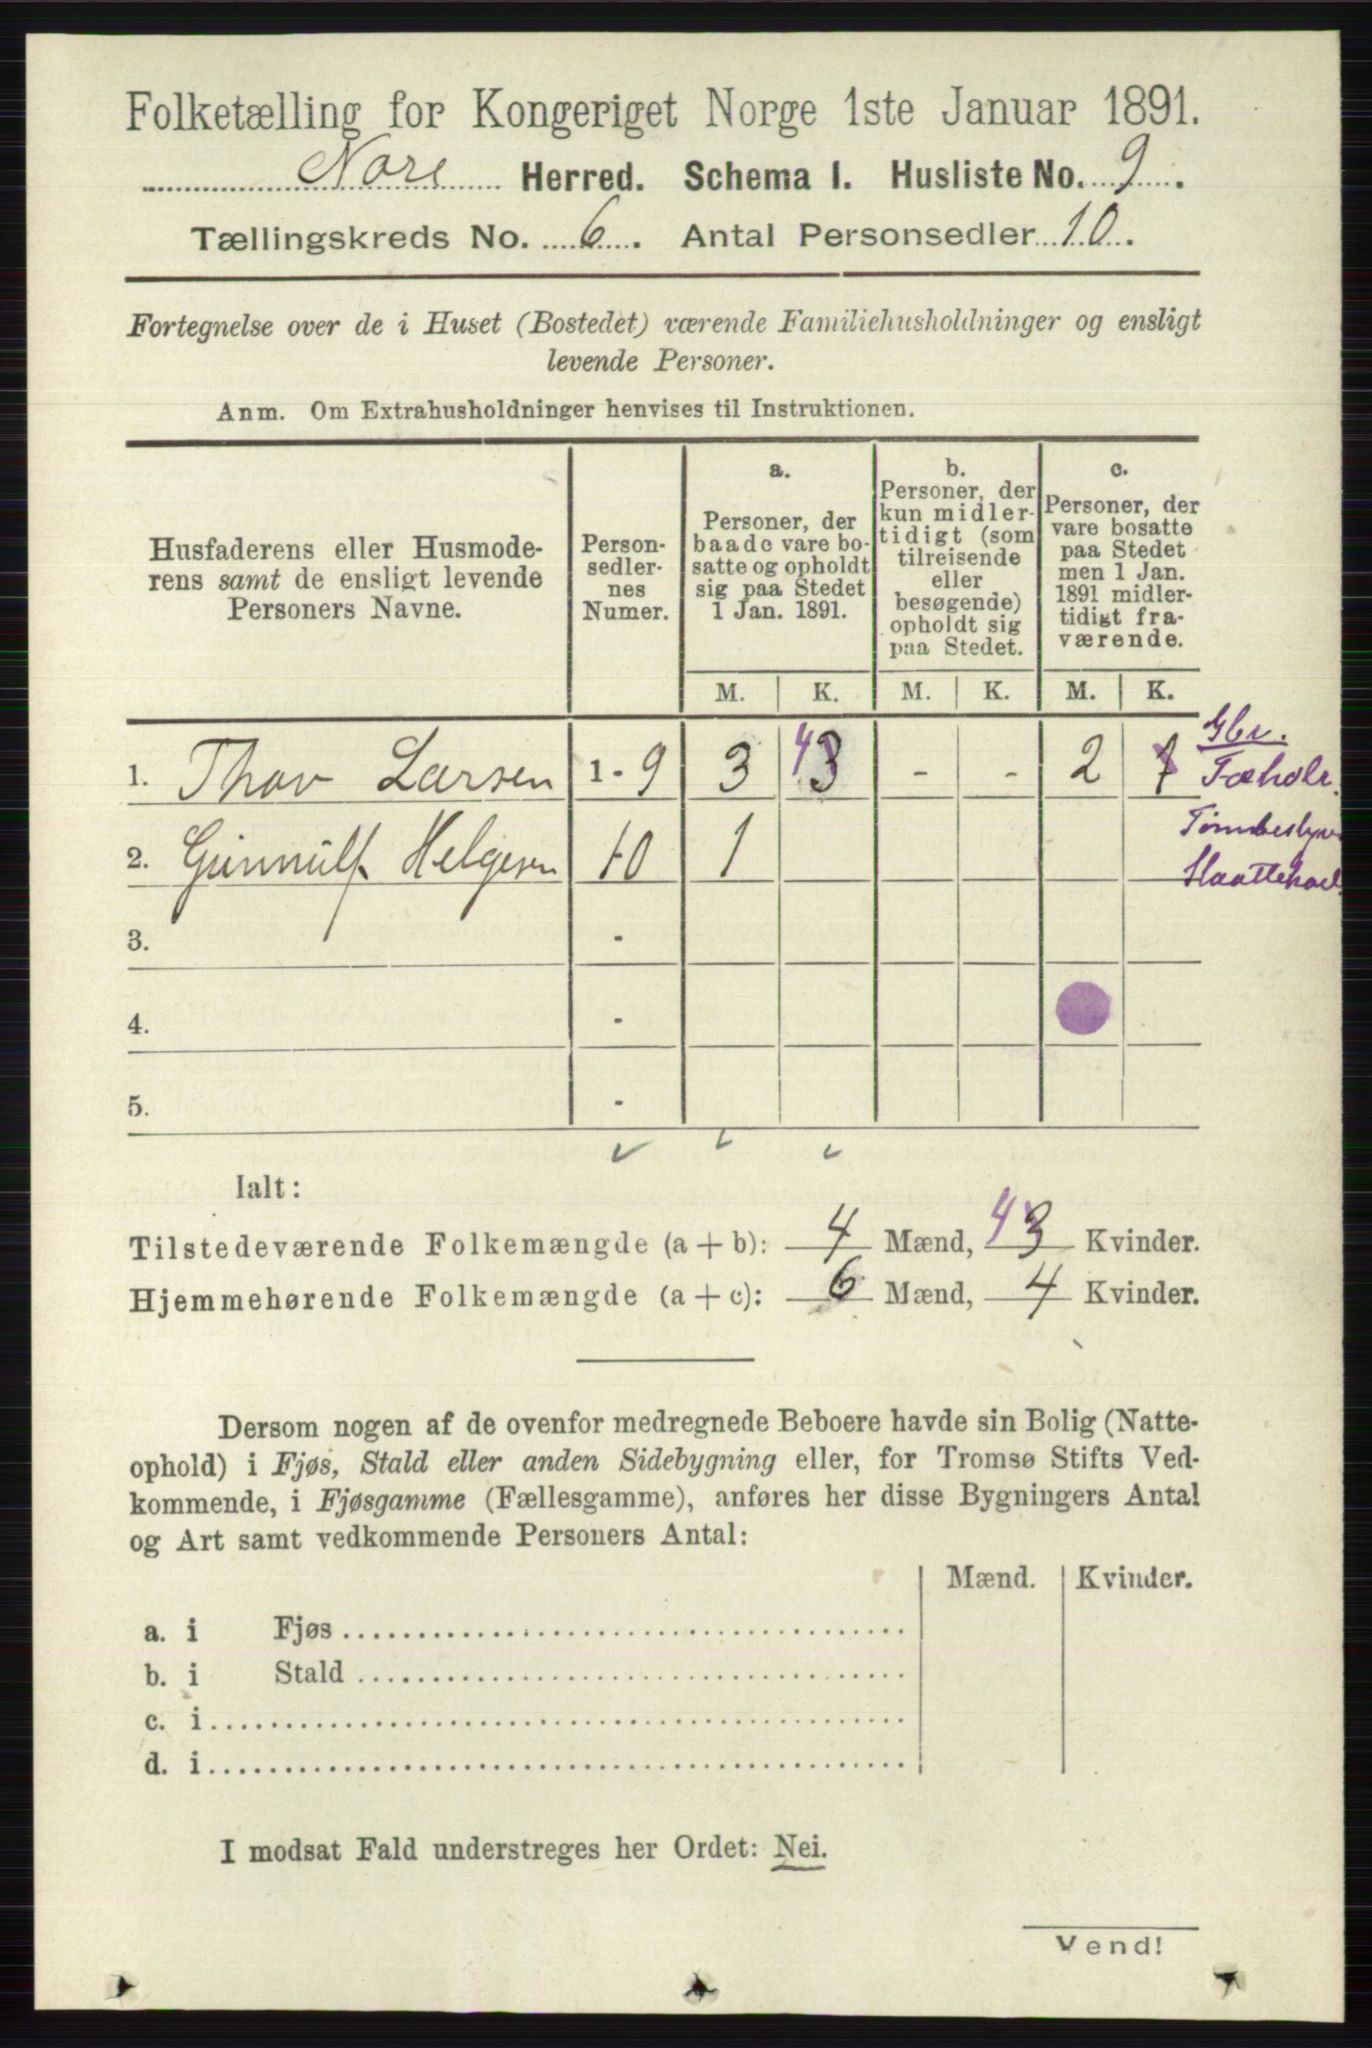 Folketælling for Kongeriget Norge 1ste Januar 1891.
Nore Herred. Schema I. Husliste No. 9.
Tællingskreds No. 6. Antal Personsedler 10.
Fortegnelse over de i Huset (Bostedet) værende Familiehusholdninger og ensligt
levende Personer.
Anm. Om Extrahusholdninger henvises til Instruktionen.
Husfaderens eller Husmode-
rens samt de ensligt levende
Personers Navne.
Person-
sedler-
nes
Numer.
a.
Personer, der
baade vare bo-
satte og opholdt
sig paa Stedet
1 Jan. 1891.
b.
Personer, der
kun midler-
tidigt (som
tilreisende
eller
besøgende)
opholdt sig
paa Stedet.
c.
Personer, der
vare bosatte
paa Stedet
men 1 Jan.
1891 midler-
tidigt fra-
værende.
M. K. M. K. M. K.
1. Thov Larsen 1 - 9 3 4 3 - - 2 1
Gbr.
2. Gunnulf Helgesen 10 1
3. -
4. -
5. -
Ialt:
Tilstedeværende Folkemængde (a + b): 4 Mænd, 4 3 Kvinder.
Hjemmehørende Folkemængde (a + c): 6 Mænd, 4 Kvinder.
Dersom nogen af de ovenfor medregnede Beboere havde sin Bolig (Natte-
ophold) i Fjøs, Stald eller anden Sidebygning eller, for Tromsø Stifts Ved-
kommende, i Fjøsgamme (Fællesgamme), anføres her disse Bygningers Antal
og Art samt vedkommende Personers Antal:
Mænd. Kvinder.
a. i Fjøs
b. i Stald
c. i
d. i
I modsat Fald understreges her Ordet: Nei.
Vend!